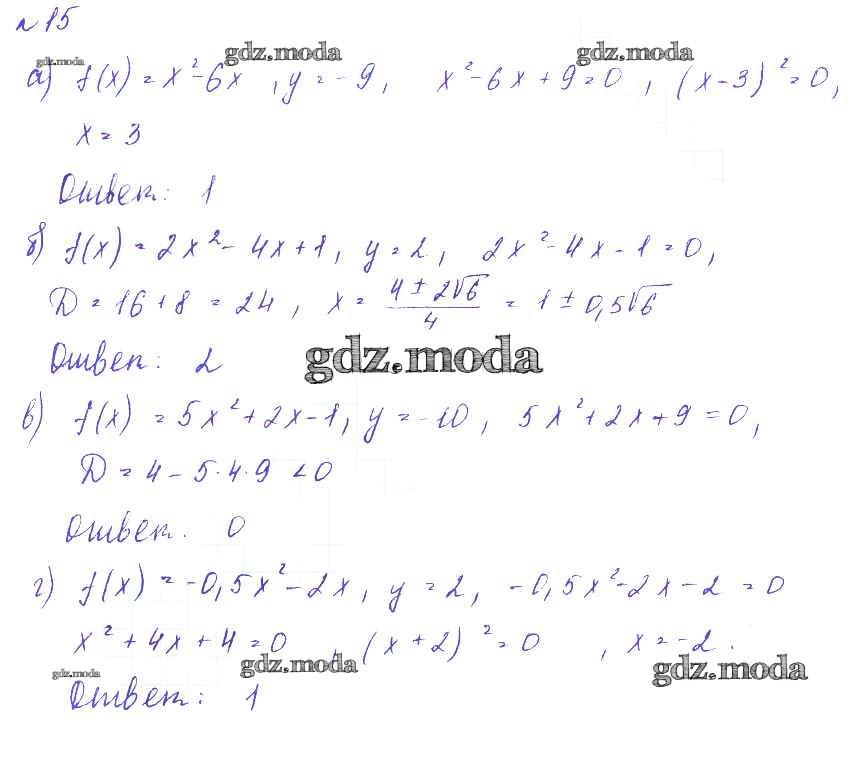 №15
gdz.moda gdz.moda
gdz.moda
а) f(x) = x²-6x, y = -9, x²-6x+9=0, (x-3)²=0,
x = 3
Ответ: 1
б) f(x) = 2x²-4x+1, y=2, 2x²-4x-1=0,
D = 16+8 = 24, x = (4±2√6)/4 = 1±0,5√6
Ответ: 2
gdz.moda
в) f(x) = 5x²+2x-1, y=-10, 5x²+2x+9=0,
D = 4-5·4·9 <0
Ответ. 0
г) f(x) = -0,5x²-2x, y=2, -0,5x²-2x-2=0
x²+4x+4=0, (x+2)²=0, x=-2.
gdz.moda gdz.moda gdz.moda
Ответ: 1